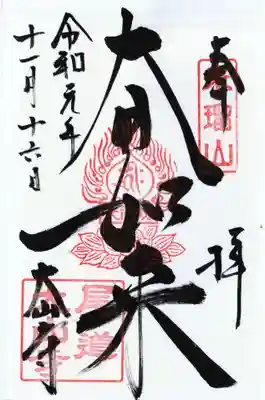 奉拝
大日如来
令和元年
十一月十六日
大山寺
尾道